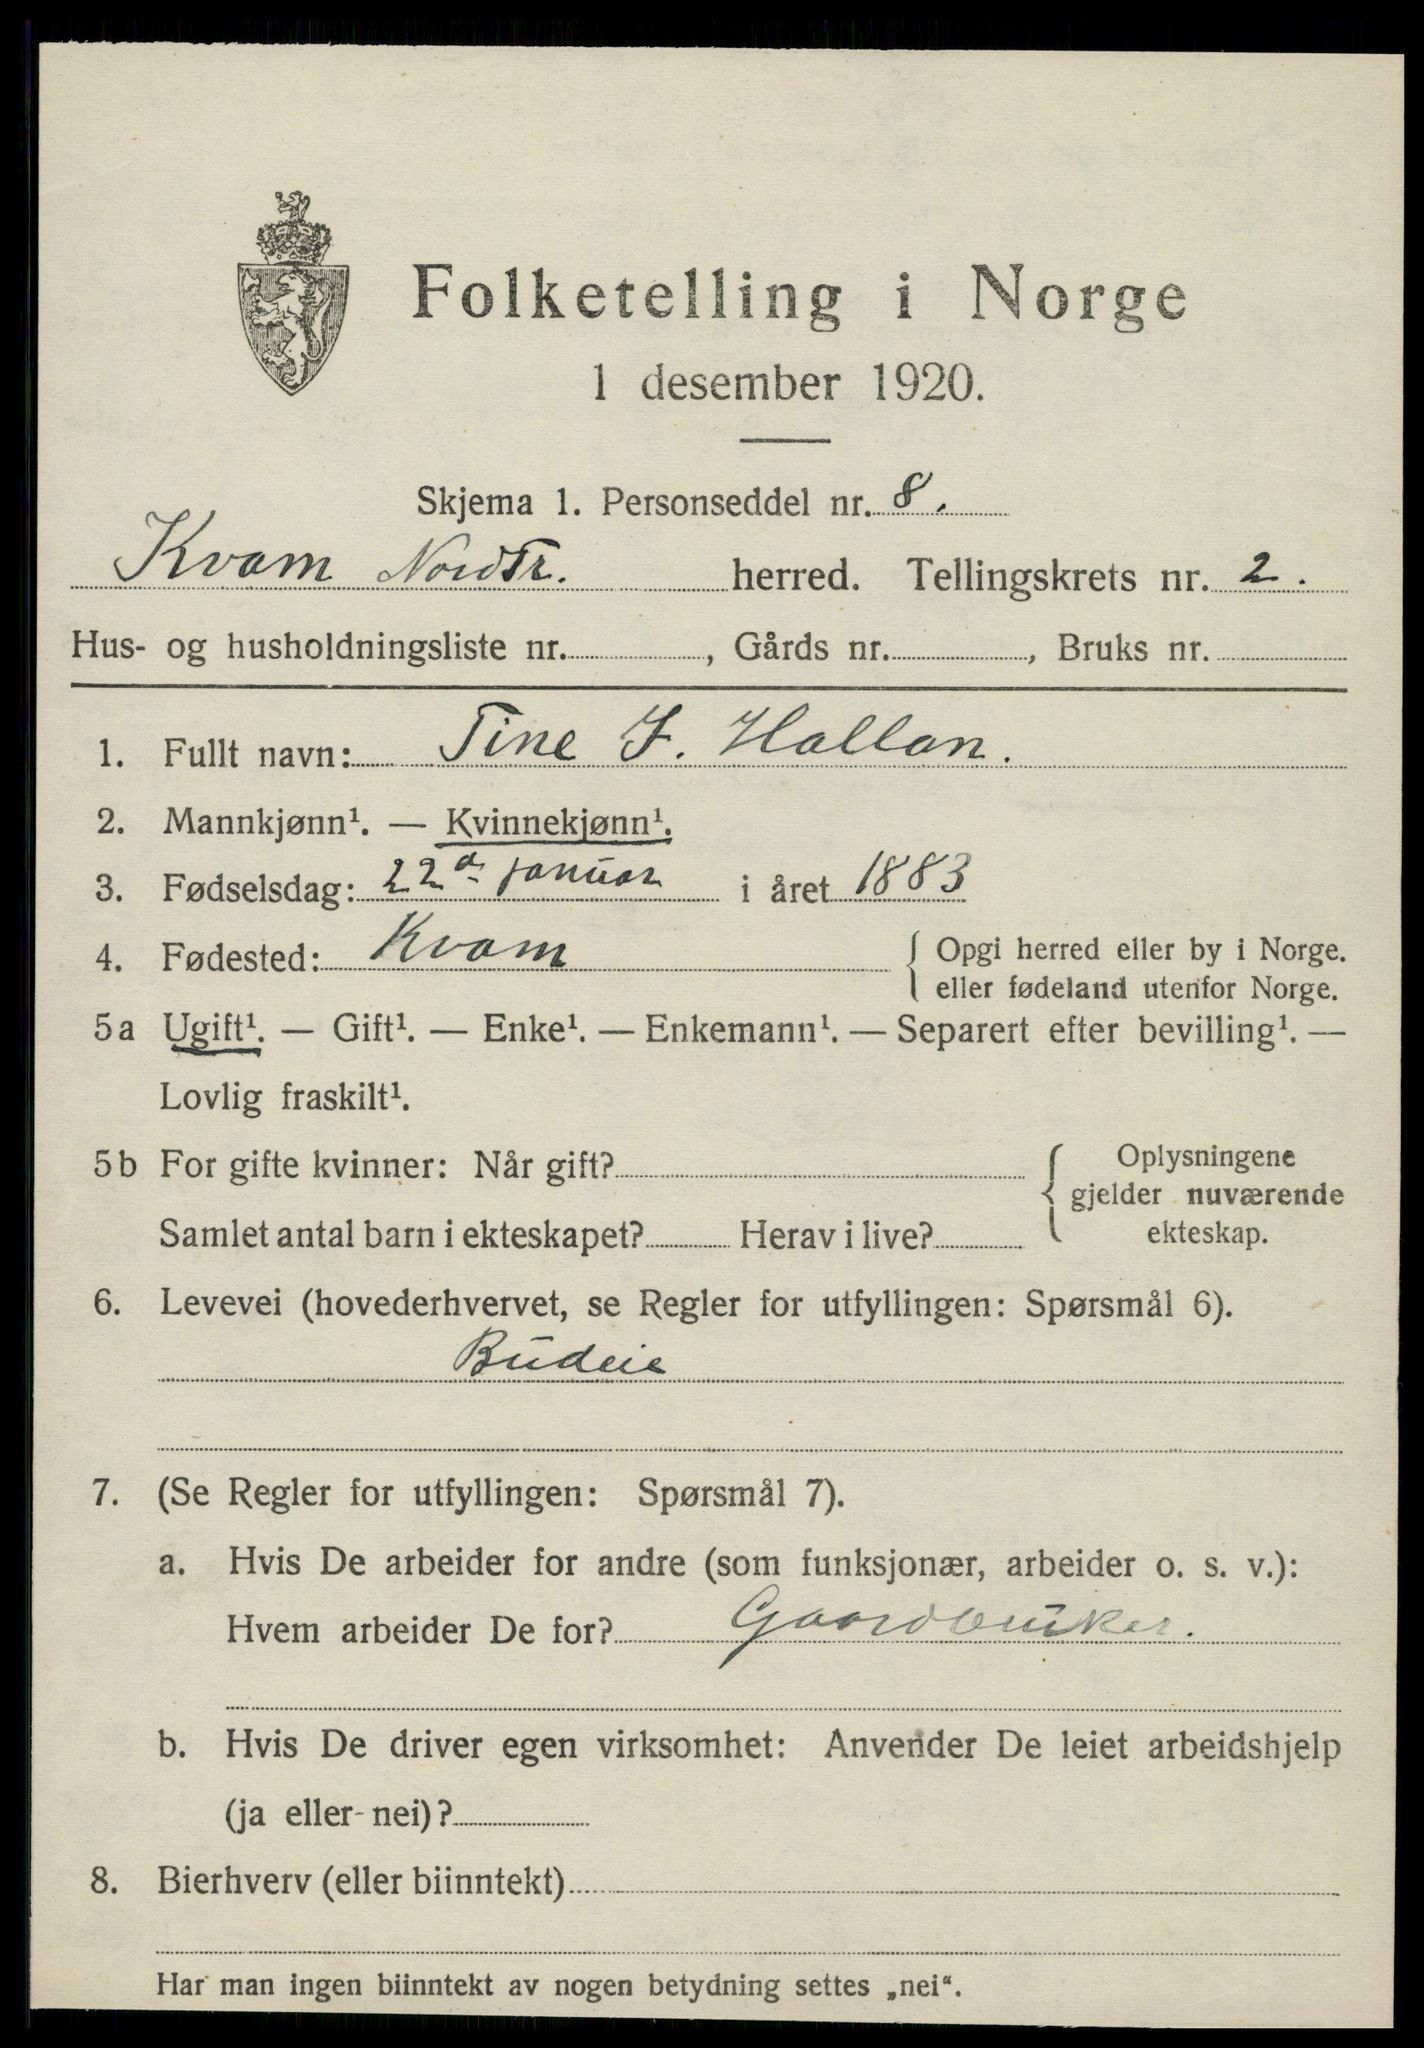 Folketelling i Norge
1 desember 1920.
Skjema 1. Personseddel nr. 8.
Kvam NordTr. herred. Tellingskrets nr. 2.
Hus- og husholdningsliste nr. , Gårds nr. , Bruks nr.
1. Fullt navn: Tine J. Hallan.
2. Mannkjønn¹. — Kvinnekjønn¹.
3. Fødselsdag: 22de januar i året 1883
4. Fødested: Kvam { Opgi herred eller by i Norge.
eller fødeland utenfor Norge.
5a Ugift¹. — Gift¹. — Enke¹. — Enkemann¹. — Separert efter bevilling¹. —
Lovlig fraskilt¹.
5b For gifte kvinner: Når gift? { Oplysningene
gjelder nuværende
Samlet antal barn i ekteskapet? Herav i live? ekteskap.
6. Levevei (hovederhvervet, se Regler for utfyllingen: Spørsmål 6).
Budeie
7. (Se Regler for utfyllingen: Spørsmål 7).
a. Hvis De arbeider for andre (som funksjonær, arbeider o. s. v.):
Hvem arbeider De for? Gaardbruker.
b. Hvis De driver egen virksomhet: Anvender De leiet arbeidshjelp
(ja eller nei)?
8. Bierhverv (eller biinntekt)
Har man ingen biinntekt av nogen betydning settes „nei“.